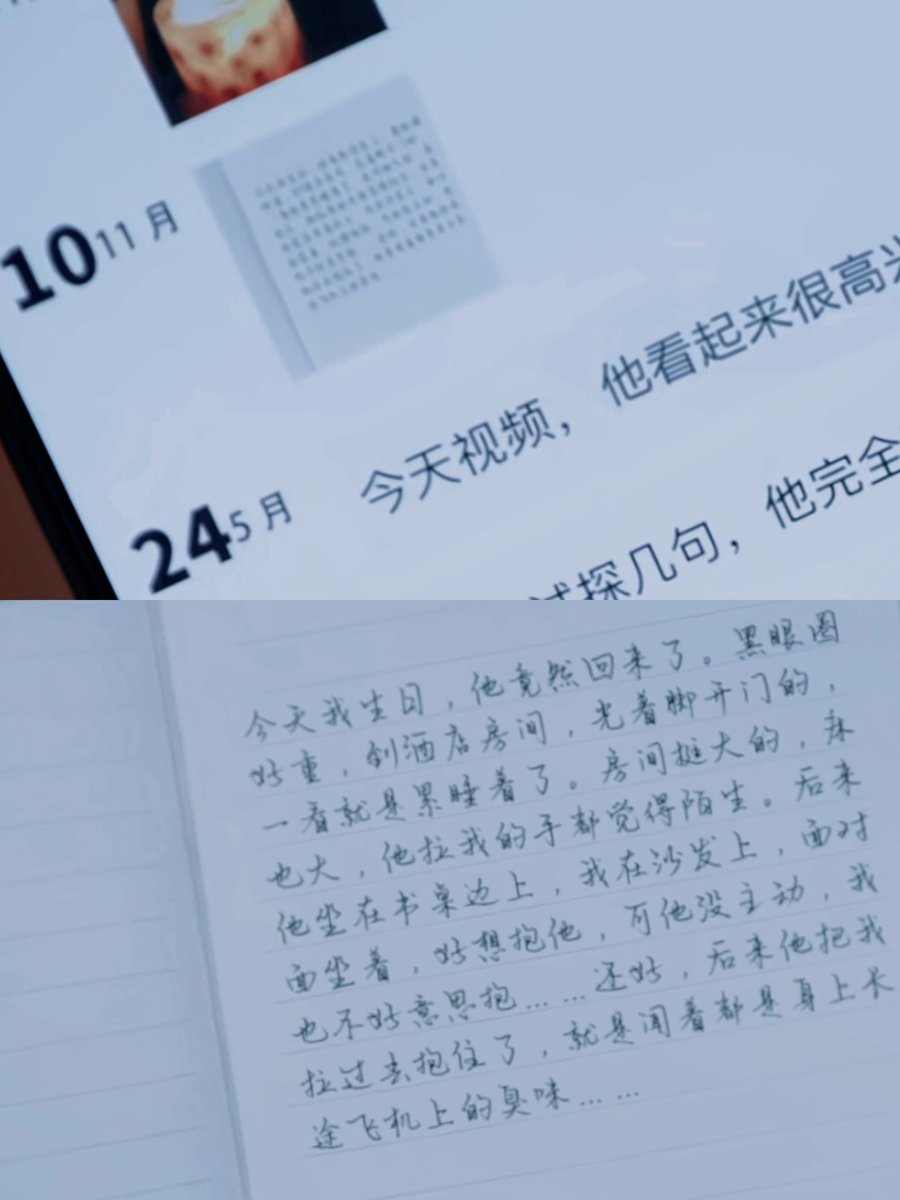 10 11月
今天视频，他看起来很高
24 5月
试探几句，他完全
今天我生日，他竟然回来了。黑眼圈
好重，到酒店房间，光着脚开门的，
一看就是累睡着了。房间挺大的，床
也大，他拉我的手都觉得陌生。后来
他坐在书桌边上，我在沙发上，面对
面坐着，好想抱他，可他没主动，我
也不好意思抱……还好，后来他把我
拉过去抱住了，就是闻着都是身上长
途飞机上的臭味……